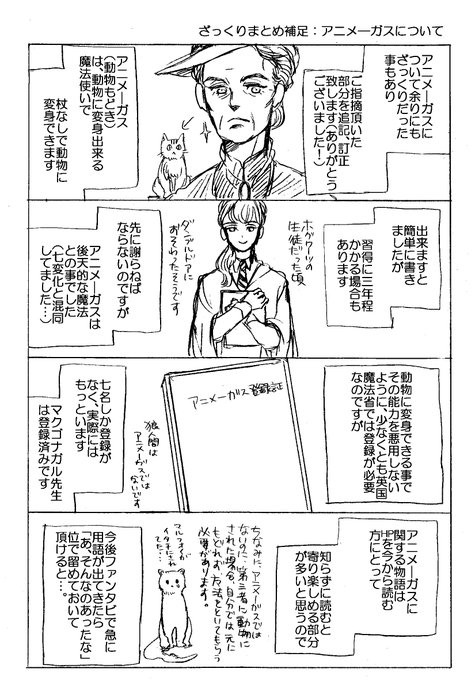 ざっくりまとめ補足：アニメーガスについて
アニメーガスに
ついて余りにも
ざっくりだった
事もあり
ご指摘頂いた
部分を追記、訂正
致します（ありがとう
ございました！）
アニメーガス
（動物もどき）
は、動物に変身出来る
魔法使いで
杖なしで動物に
変身できます
出来ますと
簡単に書き
ましたが
習得に三年程
かかる場合も
あります
ホグワーツの
生徒だった頃
ダンブルドアに
おそわったそうです
先に謝らねば
ならないのですが
アニメーガスは
後天的な魔法
との事でした
（七変化と混同
してました…）
動物に変身できる事で
その能力を悪用しない
ように、少なくとも英国
魔法省では登録が必要
なのですが
アニメーガス登録証
狼人間は
アニメーガスでは
ないです
七名しか登録が
なく、実際には
もっといます
マクゴナガル先生
は登録済みです
アニメーガスに
関する物語は
HPを今から読む
方にとって
知らずに読むと
寄り楽しめる部分
が多いと思うので
ちなみに、アニメーガスでは
ないのに第三者に動物に
された場合、自分では元に
もどれず方法をといてもらう
必要があります。
マルフォイが
イタチにされ
てた…
今後ファンタビで急に
用語が出てきたら
「あ、そんなのあったな」
位で留めておいて
頂けると…。